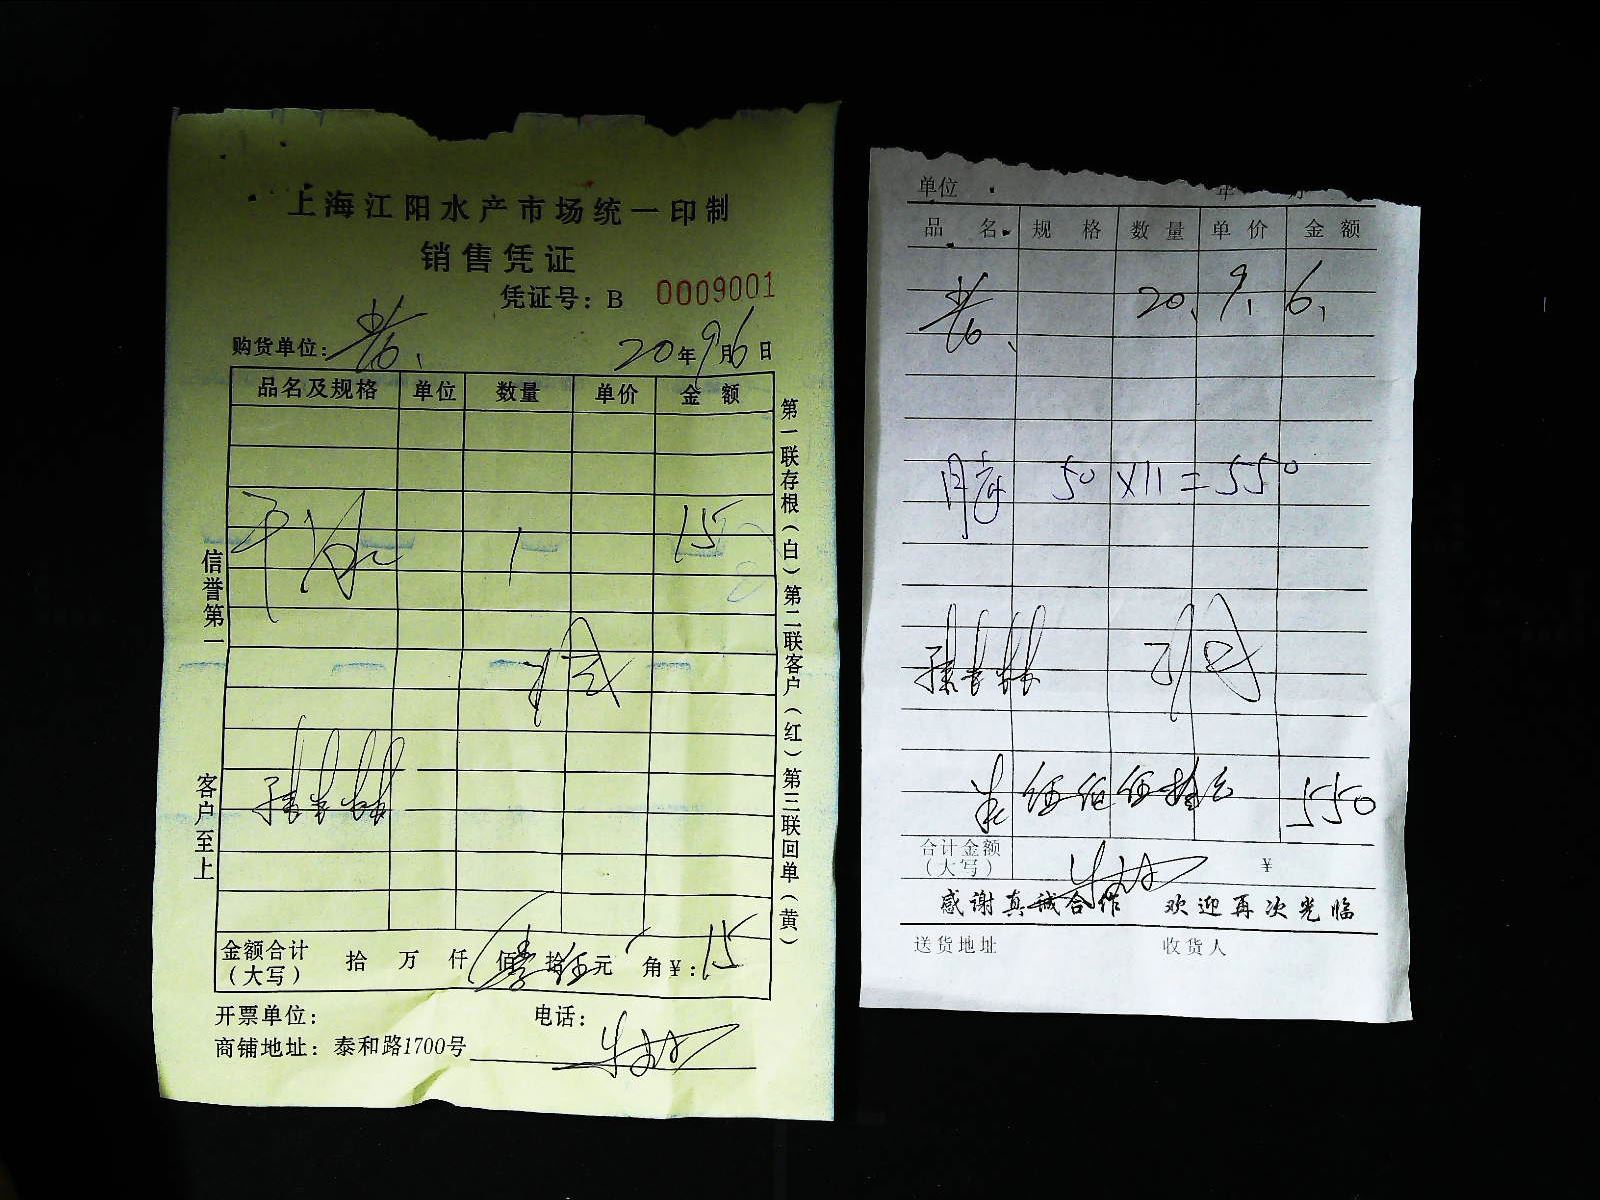 上海江阳水产市场统一印制
销售凭证
凭证号：B 0009001
购货单位： 20年9月6日
品名及规格 单位 数量 单价 金额
干冰 1 15
信誉第一
客户至上
第一联存根（白）第二联客户（红）第三联回单（黄）
金额合计（大写） 拾 万 仟 佰 拾 伍 元 角 ¥：15
开票单位： 电话：
商铺地址：泰和路1700号
单位 年 月
品名 规格 数量 单价 金额
20、9、6、
50×11=550
伍佰伍拾元 550
合计金额（大写） ¥
感谢真诚合作 欢迎再次光临
送货地址 收货人